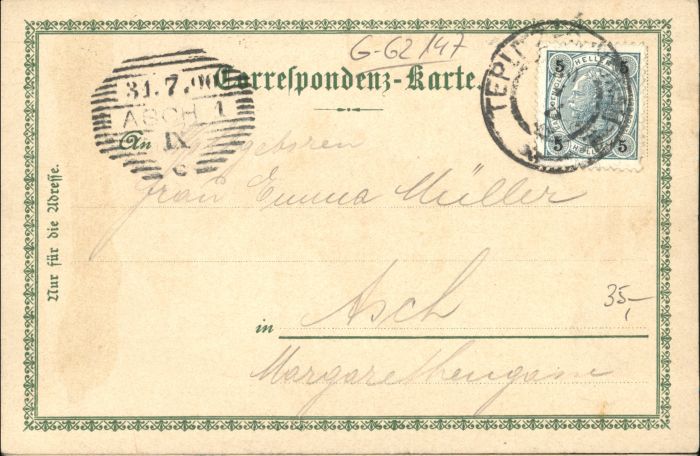 G-62/47
Correspondenz-Karte.
31.7.00
ASCH 1
IX
c
TEPLITZ
5 HELLER 5
5 5
An Wohlgeboren
Frau Emma Müller
Nur für die Adresse.
35,-
in Asch
Margarethengasse